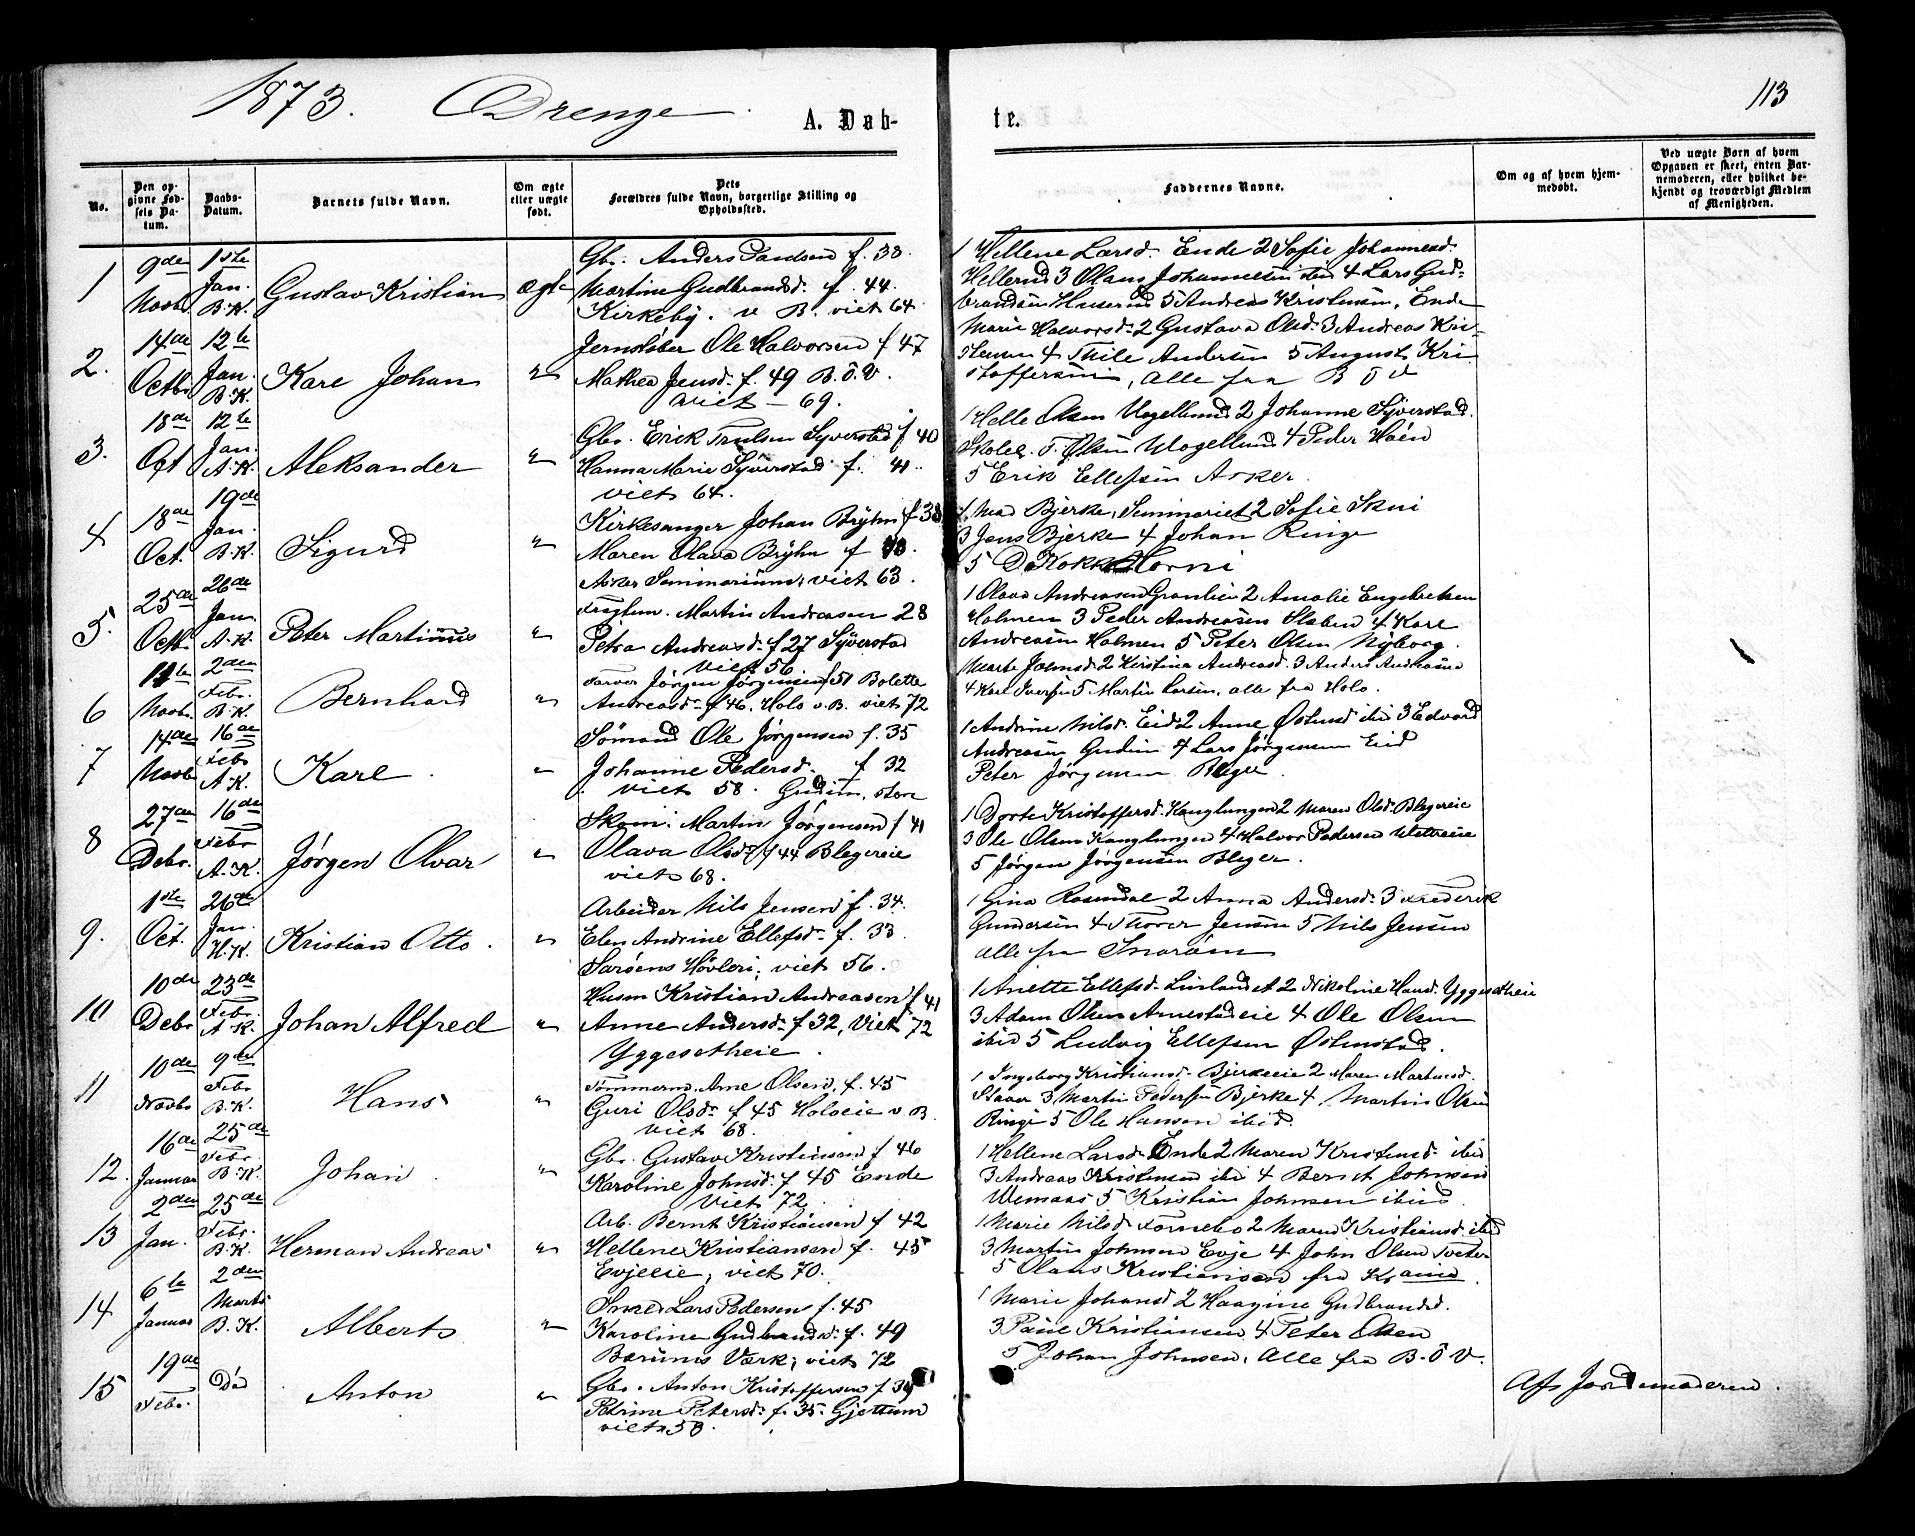 1873. Drenge A. Døb- te. 113
No.
Den opgivne Fødsels Datum.
Daabs-Datum.
Barnets fulde Navn.
Om ægte eller uægte født.
Dets Forældres fulde Navn, borgerlige Stilling og Opholdssted.
Faddernes Navne.
Om og af hvem hjemmedøbt.
Ved uægte Børn af hvem Opgaven er skeet, enten Barnemoderen, eller hvilket bekjendt og troværdigt Medlem af Menigheden.
1 9de Novbr 1ste Jan. B.K. Gustav Kristian ægte
Gbr. Anders Paulsen f. 38.
Martine Gudbrandsd. f. 44.
Kirkeby. v B. viet 64
1 Hellene Larsd. Ende 2 Sofie Johannesd.
Hellerud 3 Olaus Johannesen ibid 4 Lars Gud-
brandsen Huserud 5 Andreas Kristiansen, Ende
2. 14de Octbr 12te Jan. B.K. Karl Johan "
Jernstøber Ole Halvorsen f 47
Mathea Jensd. f. 49 B.ö.V.
viet - 69.
Marie Halvorsd. 2 Gustava Olsd. 3 Andreas Kri-
stensen 4 Thile Andersen 5 August Kri
stoffersen, alle fra B ö V
3. 18de Oct 12te Jan. A.K. Aleksander "
Gbr. Erick Trulsen Syverstad f 40
Hanna Marie Syverstad f. 41.
viet 64.
1 Helle Olsen Vogellund 2 Johanne Syverstad.
Skolel. T. Olsen Wogellund 4 Peder Hoën
5 Erik Ellefsen Asker.
4 18de Oct. 19de Jan. B.K. Sigurd "
Kirkesanger Johan Bryhn f 38
Maren Olava Bryhn f 40.
Asker Seminarium, viet 63.
1 Mad Bjerke, Seminariet 2 Sofie Skui
3 Jens Bjerke 4 Johan Ringi
5 D Kokk Horni
5. 25de Octb. 26de Jan. A.K. Peter Martinius "
Martin Andreasen 28
Petra Andreasd. f 27 Syverstad
viet 56
1 Olava Andreasen Granlien 2 Amalie Engebretsen
Holmen 3 Peder Andreasen Slaben 4 Karl
Andreasen Holmen 5 Peter Olsen Nyborg.
6 11te Novbr. 2den Febr. B.K. Bernhard "
Farver Jörgen Jörgensen f 51 Bolette
Andreasd. f 46. Holo v. B. viet 72
Marte Jonsd. 2 Kristina Andreasd. 3 Anders Andreasen
4 Karl Iversen 5 Martin Larsen, alle fra Holo.
7 14de Novbr 16de Febr A.K. Karl "
Sömand Ole Jörgensen f. 35
Johanne Pedersd. f 32
viet 58. Gudim, store
1 Andrine Nilsd. Eid 2 Anne Östensd ibi 3 Edvard
Andreasen Gudim 4 Lars Jörgensen Eid
Peter Jörgensen Bleger.
8 27de Debr. 16de Febr A.K. Jörgen Olvar "
Skom. Martin Jörgensen f 41
Olava Olsd. f 44 Blegereie
viet 68.
1 Dorte Kristoffersd. Kanglungen 2 Maren Olsd. Blegereie
3 Ole Olsen Kanglungen 4 Halvor Pedersen
5 Jörgen Jörgensen Bleger.
9. 1ste Oct. 26de Jan. H.K. Kristian Otto. "
Arbeider Nils Jensen f. 34.
Elen Andrine Ellefsd. f. 33
viet 56.
1 Gina Rosendal 2 Anna Andersd. 3 Frederik
Gundersen 4 Thorer Jensen 5 Nils Jensen
alle fra Snaröen
10 10de Debr 23de Febr. A.K. Johan Alfred "
Husm Kristian Andreasen f 41
Anne Andersd. f 32, viet 72
Yggesetheie.
1 Anette Ellefsd. Linlandet 2 Nikoline Hansd. Yggesetheie
3 Adam Olsen Arnestadeie 4 Ole Olsen
ibid 5 Ludvig Ellefsen Östenstad.
11 10de Novbr 9de Febr B.K. Hans "
Tömmerm. Arne Olsen, f. 45
Guri Olsd. f 45 Holoeie v B.
viet 68.
1 Ingeborg Kristiansd. Bjerkeeie 2 Maren Martinsd.
Staver 3 Martin Pedersen Bjerke 4 Martin Olsen
Ringi 5 Ole Hansen ibid.
12. 16de Januar 25de Febr. B.K. Johan. "
Gbr. Gustav Kristiansen f 46
Karoline Johnsd. f 45 Ende
viet 72.
1 Hellene Larsd. Ende 2 Maren Kristensd. ibid
3 Andreas Kristensen ibi 4 Bernt Johnsen
Wemaas 5 Kristian Johnsen ibid
13 2den Jan. 25de Febr. B.K. Herman Andreas "
Arb. Bernt Kristiansen f 42
Hellene Kristiansen f. 45
Evjeeie, viet 70.
1 Marie Nilsd. Fornebo 2 Maren Kristiansd. ibid
3 Martin Johnsen Evje 4 John Olsen Tveter
5 Olaus Kristiansen fra Krania.
14 6te Januar 2den Marts B.K. Alberts "
Smed Lars Pedersen f. 45
Karoline Gudbrandsd. f. 49
Bærums Værk, viet 72
1 Marie Johansd 2 Haagine Gudbrandsd.
3 Paul Kristiansen 4 Peter Olsen
5 Johan Johnsen. Alle fra B. ö V.
15 19de Febr. Död Anton "
Gbr. Anton Kristoffersen f 34
Petrine Petersd. f. 35. Gjettum
viet 58.
Af Jordemoderen.